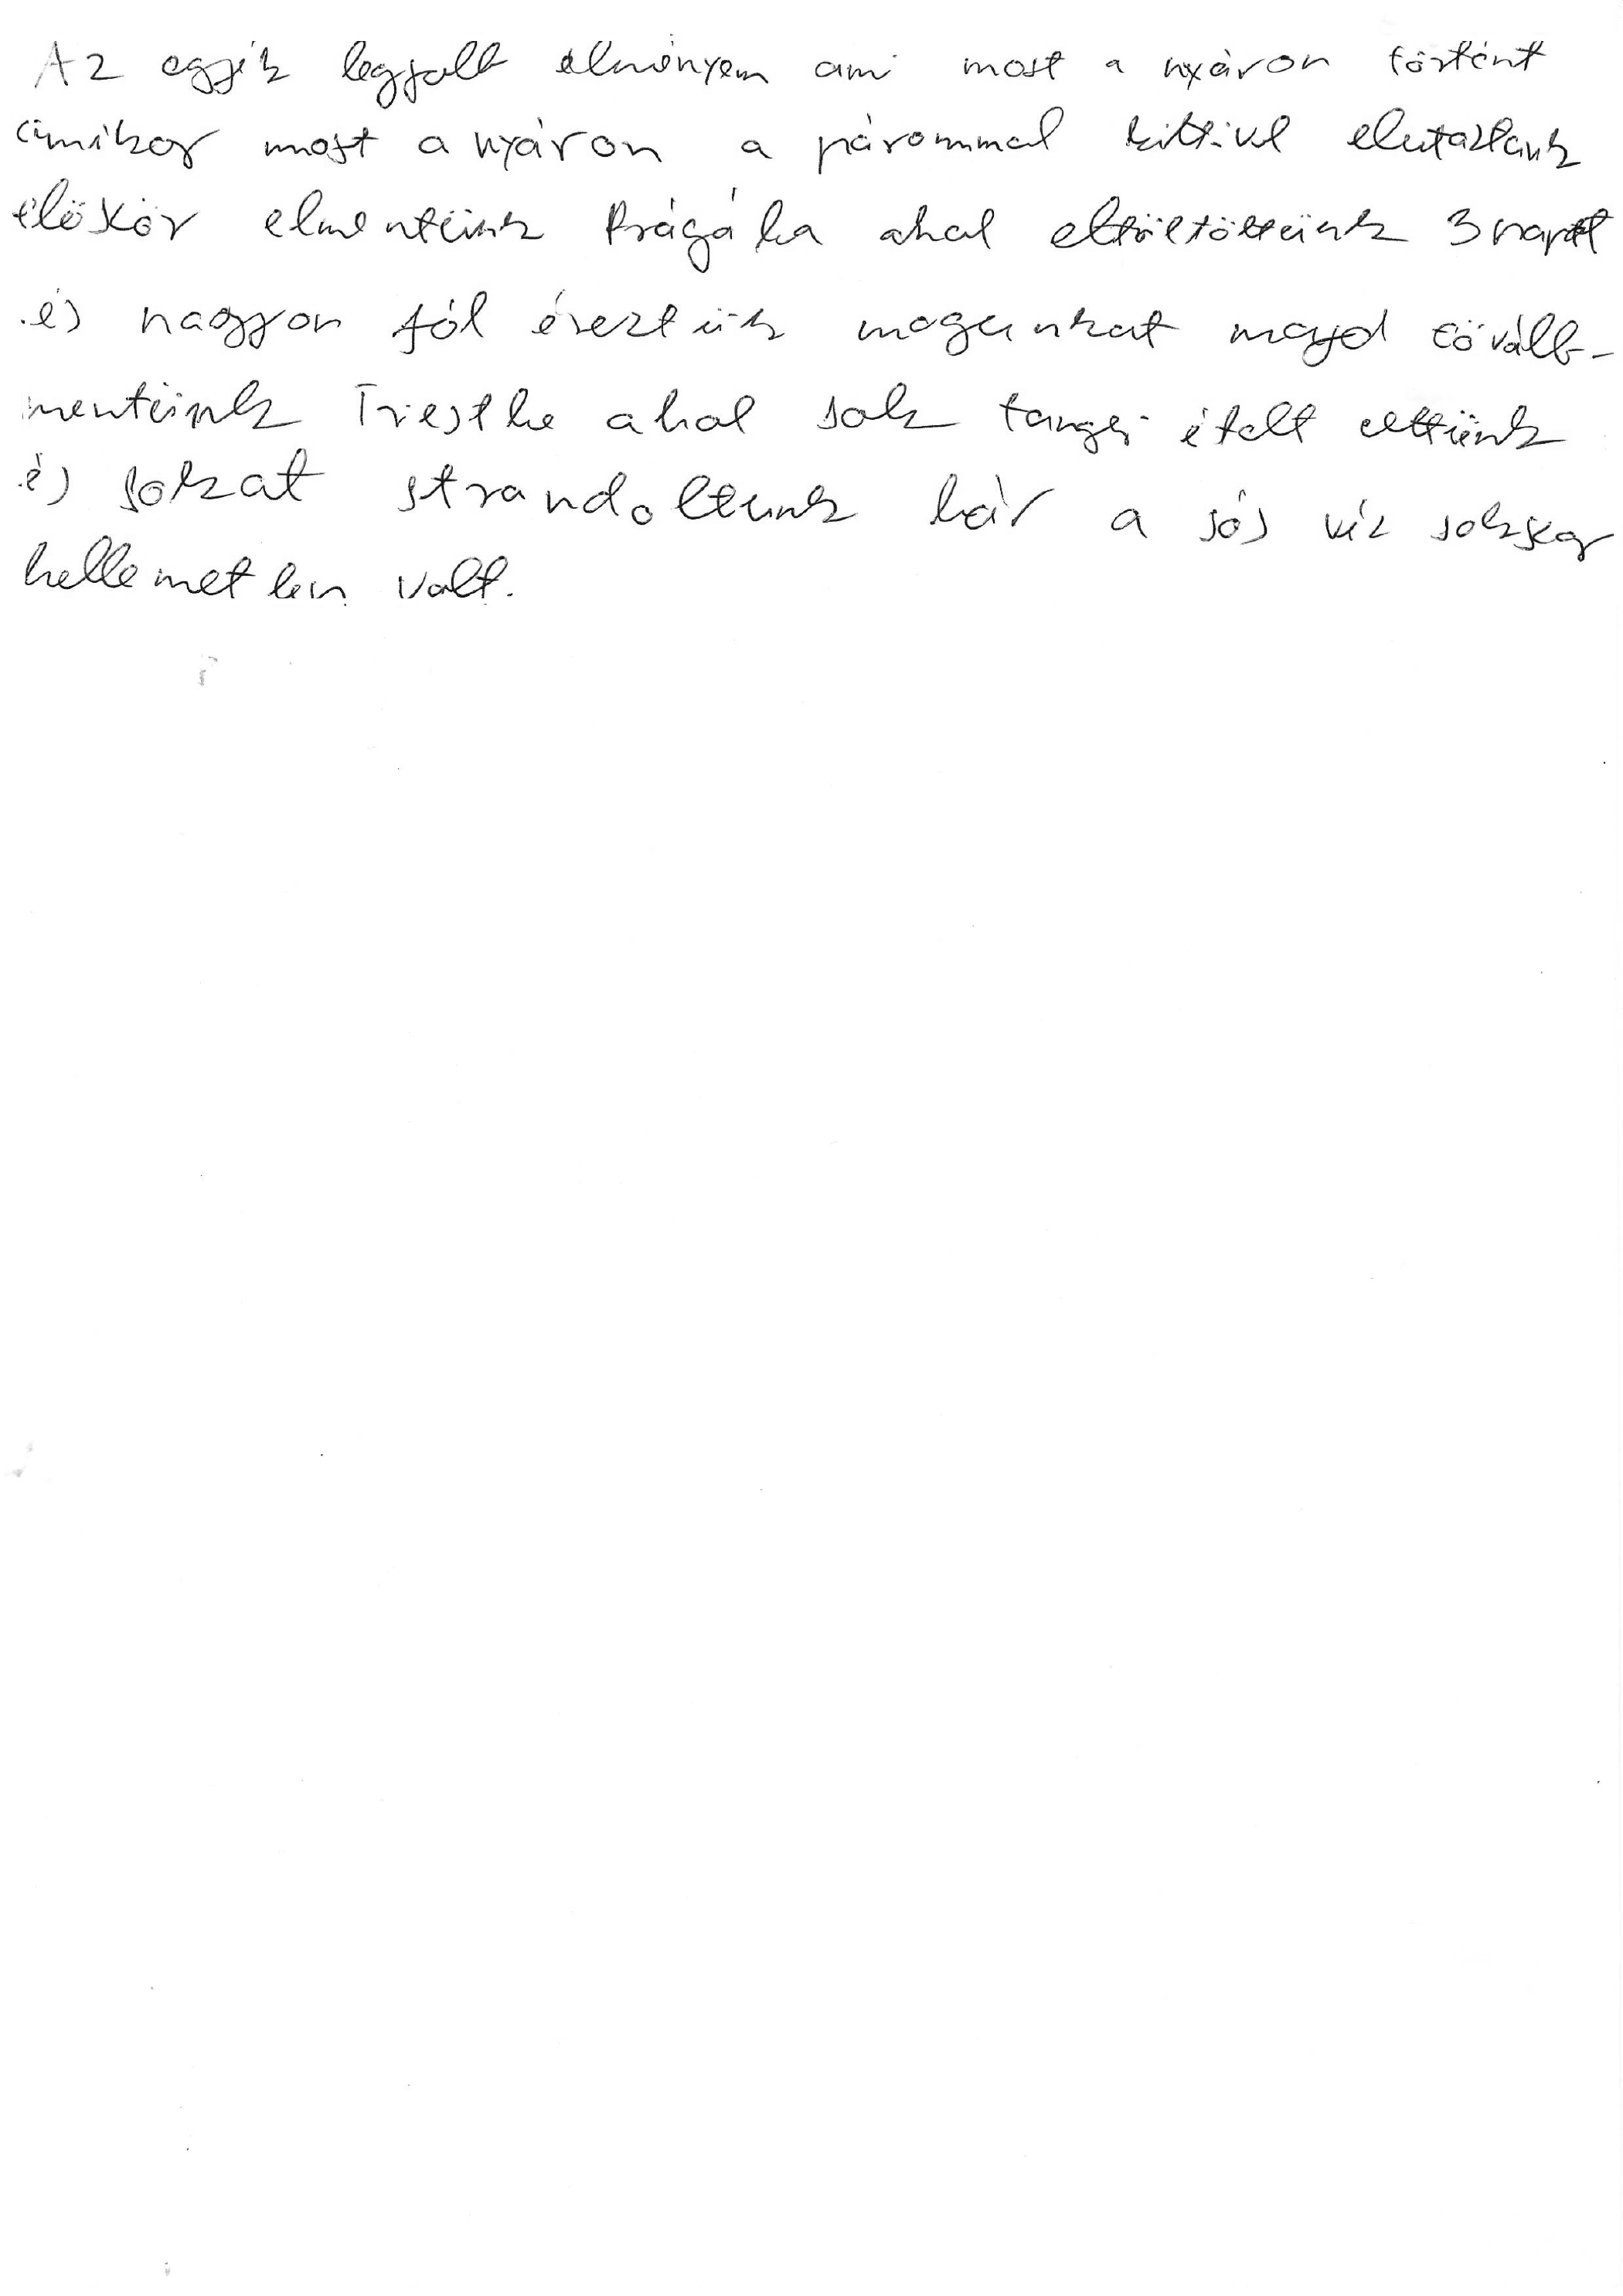 Az egyik legjobb élményem ami most a nyáron történt
amikor most a nyáron a párommal kittivel elutaztunk
először elmentünk Prágába ahol eltöltöttünk 3 napot
és nagyon jól éreztük magunkat majd tovább-
mentünk Triestbe ahol sok tengeri ételt ettünk
és sokat strandoltunk bár a sós víz sokszor
kellemetlen volt.